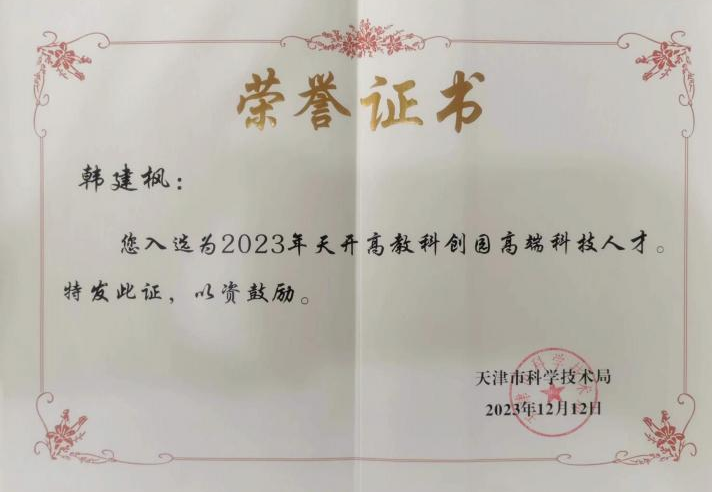 荣誉证书
韩建枫：
您入选为2023年天开高教科创园高端科技人才。
特发此证，以资鼓励。
天津市科学技术局
2023年12月12日